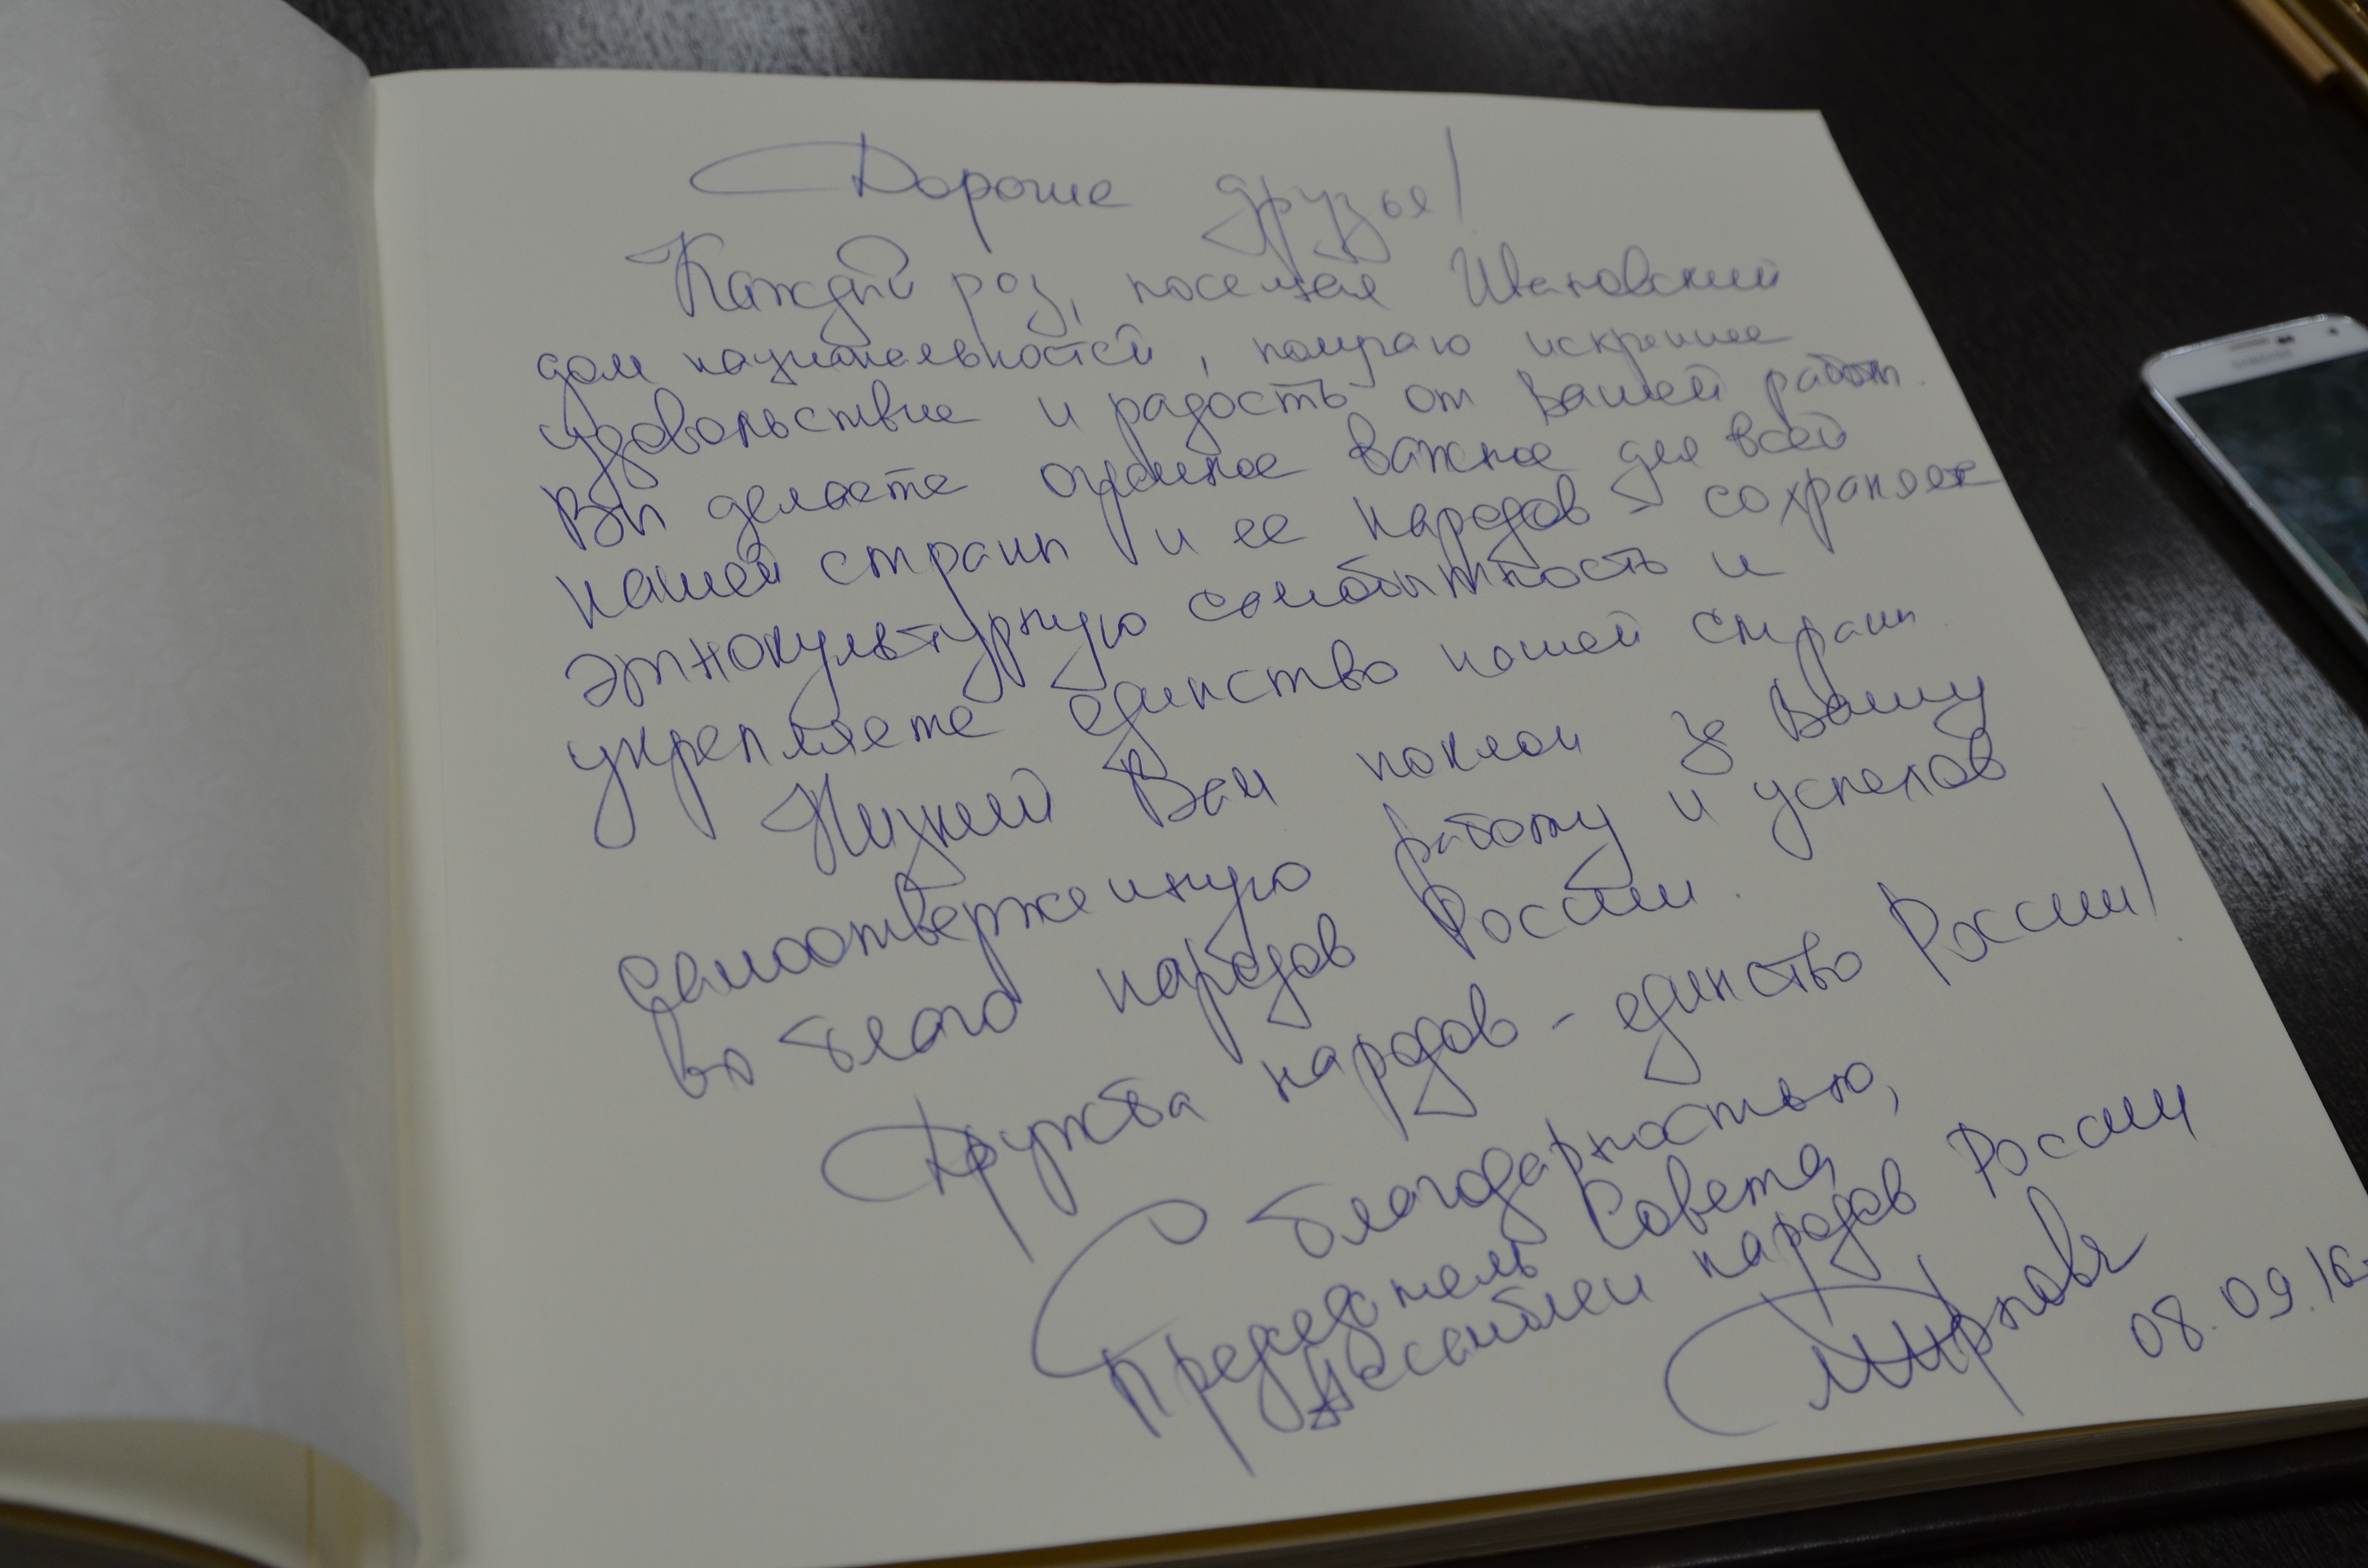 Дорогие друзья!
Каждый раз, посещая Ивановский
дом национальностей, получаю искреннее
удовольствие и радость от Вашей работы.
Вы делаете огромное важное для всей
нашей страны и ее народов - сохраняете
этнокультурную самобытность и
укрепляете единство нашей страны
Низкий Вам поклон за Вашу
самоотверженную работу и успехов
во благо народов России.
Дружба народов - единство России!
С благодарностью,
Председатель Совета
Ассамблеи народов России
Смирнова
08.09.16
SAMSUNG